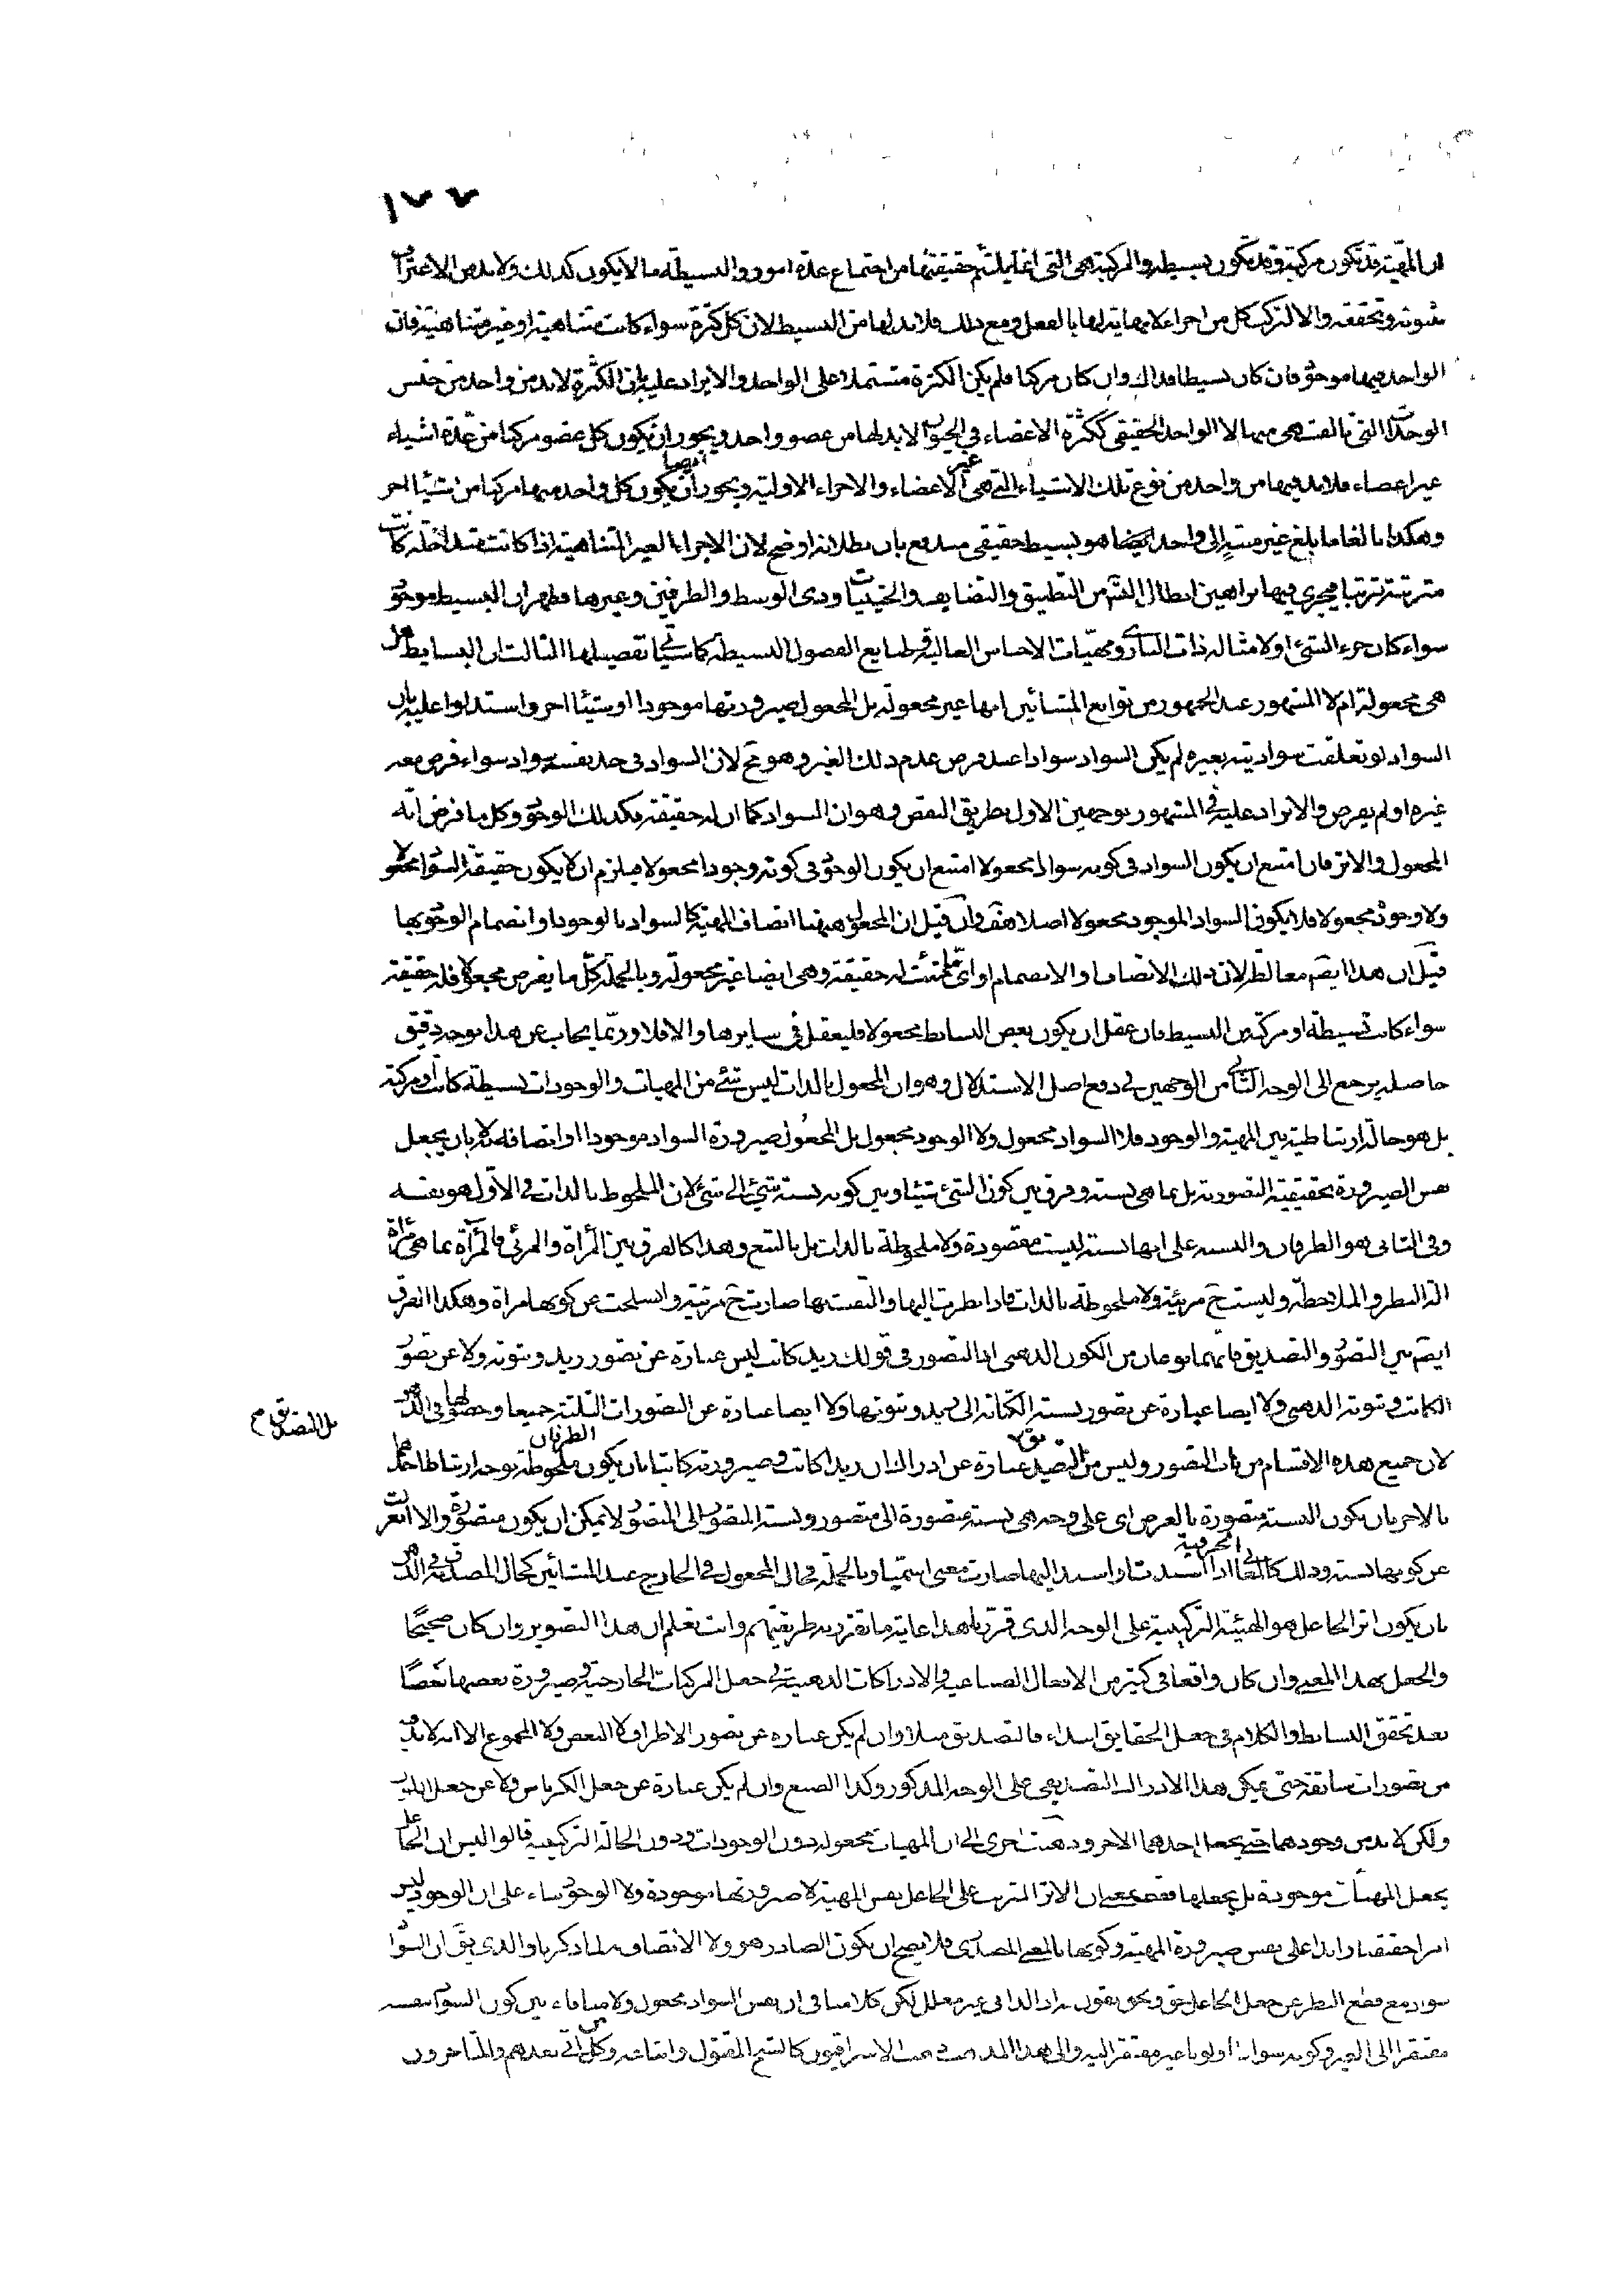 ١٧٧
ان المهية قد تكون مركبة وقد تكون بسيطه والمركبة هى التى انما يلتئم حقيقتها من اجتماع عدة امور والبسيطة ما لا يكون كذلك ولا بد من الاعتراف
بثبوته وتحققه والا لتركب كل من اجزاء لا نهاية لها بالفعل ومع ذلك فلا بد لها من البسيط لان كل كثرة سواء كانت متناهية او غير متناهية فان
الواحد فيها موجود فان كان بسيطا فذاك وان كان مركبا فلم يكن الكثرة مشتملا على الواحد والايراد عليه بان الكثرة لا بد من واحد من جنس
الوحدات التى تالفت هى منها لا الواحد الحقيقى ككثرة الاعضاء فى الحيوان لا بد لها من عضو واحد ويجوز ان يكون كل عضو مركبا من عدة اشياء
غير اعضاء فلا بد فيها من واحد من نوع تلك الاشياء التى هى غير الاعضاء والاجزاء الاولية ويجوز ان يكون ايضا كل واحد منها مركبا من اشياء اخر
وهكذا بالغا ما بلغ غير منته الى واحد ايضا هو بسيط حقيقى مندفع بان بطلانه اوضح لان الاجزاء الغير المتناهية اذا كانت متداخلة كانت
مترتبة ترتبا فيجرى فيها براهين ابطال التس من التطبيق والتضايف والحيثيات وذى الوسط والطرفين وغيرها فظهر ان البسيط موجود
سواء كان جزء الشئ او لا مثاله ذات البارى ومهيات الاجناس العالية وطبايع الفصول البسيطة كما سياتى تفصيلها الثالث ان البسايط هل
هى مجعولة ام لا المشهور عند الجمهور من توابع المشائين انها غير مجعولة بل المجعول صيرورتها موجودا او شيئا اخر واستدلوا عليه بان
السواد لو تعلقت سواديته بغيره لم يكن السواد سوادا عند فرض عدم ذلك الغير وهو مح لان السواد فى حد نفسه سواد سواء فرض معه
غيره او لم يفرض والايراد عليه فى المشهور بوجهين الاول بطريق النقض وهو ان السواد كما ان له حقيقة فكذلك الوجود وكل ما فرض انه
المجعول والاثر فان امتنع ان يكون السواد فى كونه سوادا مجعولا امتنع ان يكون الوجود فى كونه وجودا مجعولا فيلزم ان لا يكون حقيقة السواد مجعولا
ولا وجوده مجعولا فلا يكون السواد الموجود مجعولا اصلا هف وان قيل ان المجعول ههنا اتصاف المهية كالسواد بالوجود او انضمام الوجود بها
قيل ان هذا ايض مغالطة لان ذلك الاتصاف او الانضمام او اى ما شئت له حقيقة وهى ايضا غير مجعولة وبالجملة كل ما يفرض مجعولا فله حقيقة
سواء كانت بسيطة او مركبة من البسيط فان عقل ان يكون بعض البسايط مجعولا فليعقل فى سايرها والا فلا وربما يجاب عن هذا بوجه دقيق
حاصله يرجع الى الوجه الثانى من الوجهين فى دفع اصل الاستدلال وهو ان المجعول بالذات ليس شئ من المهيات والوجودات بسيطة كانت او مركبة
بل هو حالة ارتباطية بين المهية والوجود فلا السواد مجعول ولا الوجود مجعول بل المجعول صيرورة السواد موجودا او اتصافه به لا بان يجعل
نفس الصيرورة بحقيقتها التصورية بل بما هى نسبة وفرق بين كون الشئ شيئا وبين كونه نسبة شئ الى شئ لان الملحوظ بالذات فى الاول هو نفسه
وفى الثانى هو الطرفان والنسبة على انها نسبة ليست مقصودة ولا ملحوظة بالذات بل بالتبع وهذا كالفرق بين المرآة والمرئى فالمرآة بما هى مرآة
آلة النظر والملاحظة وليست ح مرئية ولا ملحوظة بالذات فاذا نظرت اليها والتفت بها صارت ح مرئية وانسلخت عن كونها مرآة وهكذا الفرق
ايض بين التصور والتصديق فانهما نوعان من الكون الذهنى اذ التصور فى قولك زيد كاتب ليس عبارة عن تصور زيد وثبوته ولا عن تصور
الكاتب وثبوته الذهنى ولا ايضا عبارة عن تصور نسبة الكتابة الى زيد وثبوتها ولا ايضا عبارة عن التصورات الثلثة جميعا وحصولها فى الذهن
بل التصديق م
لان جميع هذه الاقسام من باب التصور وليس من التصديق عبارة عن ادراك ان زيدا كاتب وصيرورته كاتبا بان يكون الطرفان ملحوظة بوجه ارتباط احدهما
بالاخر بان يكون النسبة متصورة بالعرض اى على وجه هى نسبة متصورة الى متصور ونسبة المتصور الى المتصور لا يمكن ان يكون متصورة والا انعزلت
عن كونها نسبة وذلك كالمعانى الحرفية اذا اسندت او اسند اليها صارت معنى اسميا وبالجملة فحال المجعول فى الخارج عند المشائين كحال المصدق فى الذهن
بان يكون اثر الجاعل هو الهيئة التركيبية على الوجه الذى قررناه هذا غاية ما تقرر به طريقتهم وانت تعلم ان هذا التصوير وان كان صحيحا
والجعل بهذا المعنى وان كان واقعا فى كثير من الافعال الصناعية والادراكات الذهنية فى جعل المركبات الخارجية وصيرورة بعضها بعضا
بعد تحقق البسايط والكلام فى جعل الحقايق ابتداء فالتصديق مثلا وان لم يكن عبارة عن تصور الاطراف لا البعض ولا المجموع الا انه لا بد فيه
من تصورات سابقة حتى يمكن هذا الادراك التصديقى على الوجه المذكور وكذا الصبغ وان لم يكن عبارة عن جعل الكرباس ولا عن جعل
ولكن لا بد من وجودهما حتى يجعل احدهما الاخر وذهبت اخرى الى ان المهيات مجعولة دون الوجودات ودون الحالة التركيبية قالوا ليس ان الجاعل
يجعل المهيات موجودة بل يجعلها فقط بمعنى ان الاثر المترتب على الجاعل نفس المهية لا صيرورتها موجودة ولا الوجود بناء على ان الوجود ليس
امرا حقيقيا زايدا على نفس صيرورة المهية وكونها بالمعنى المصدرى فلا يصح ان يكون الصادر هو ولا الاتصاف به لما ذكرنا والذى يق ان السواد
سواد مع قطع النظر عن جعل الجاعل حق ونحن نقول به اذ الذاتى غير معلل لكن كلامنا فى ان نفس السواد مجعول ولا منافاة بين كون السواد نفسه
مفتقرا الى الغير وكونه سوادا او لونا غير مفتقر اليه والى هذا المذهب ذهب الاشراقيون كالشيخ المقتول واتباعه وكل من اتى بعدهم والمتاخرون